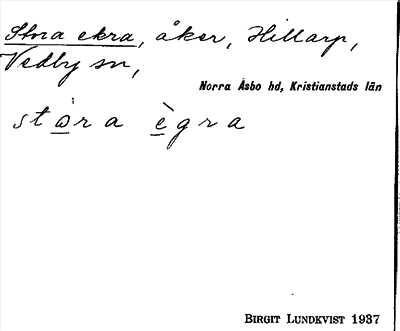 Stora ekra, åker, Hillarp,
Vedby sn,
Norra Åsbo hd, Kristianstads län
stò̲ra è̲gra
BIRGIT LUNDKVIST 1937